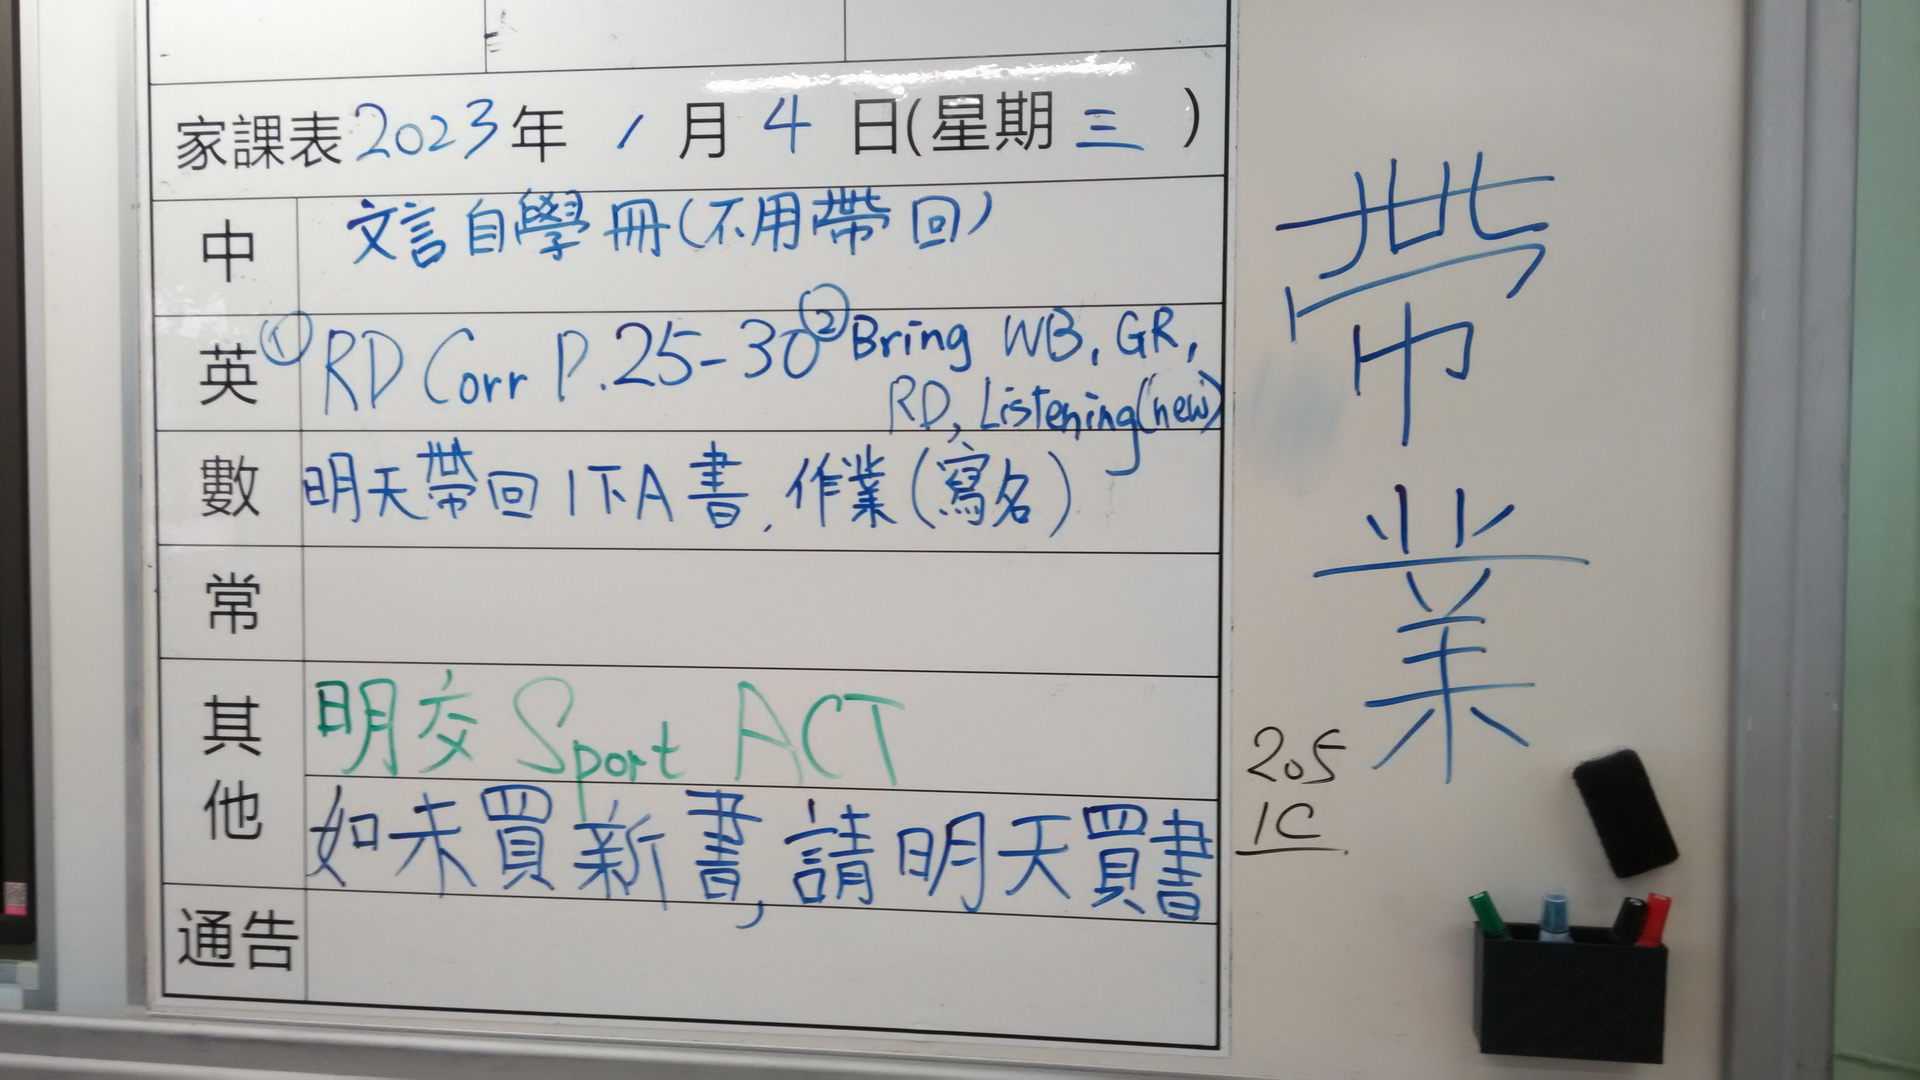 家課表2023年 1 月 4 日(星期 三 )
中 文言自學冊(不用帶回)
英 ①RD Corr P.25-30 ②Bring WB, GR,
RD, Listening(new)
數 明天帶回1下A書, 作業(寫名)
常
其他 明交 Sport ACT
如未買新書, 請明天買書
通告
帶
業
205
1C